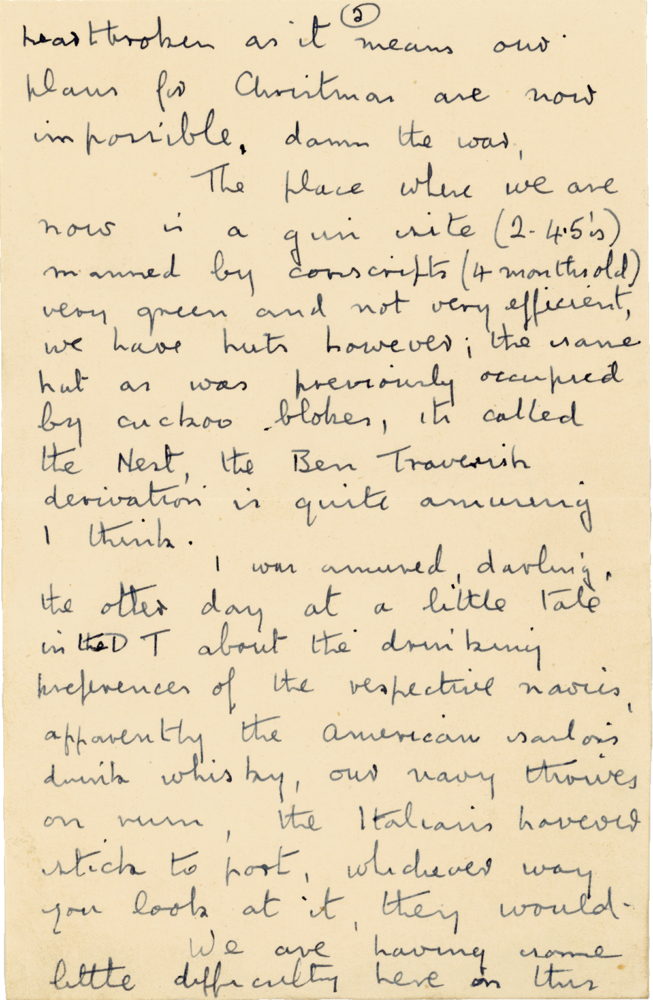 (2)
heartbroken as it means our
plans for Christmas are now
impossible, damn the war,
The place where we are
now is a gun site (2-4.5's)
manned by conscripts (4 months old)
very green and not very efficient,
we have huts however; the same
hut as was previously occupied
by cuckoo blokes, its called
the Nest, the Ben Traversish
derivation is quite amusing
I think.
I was amused, darling,
the other day at a little Tale
in the D T about the drinking
preferences of the respective navies,
apparently the American sailors
drink whisky, our navy thrives
on rum, the Italians however
stick to port, whichever way
you look at it, they would.
We are having some
little difficulty here in this